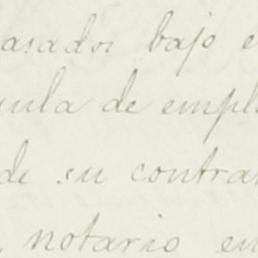 asador bajo e
ula de empl
de su contra
notario en